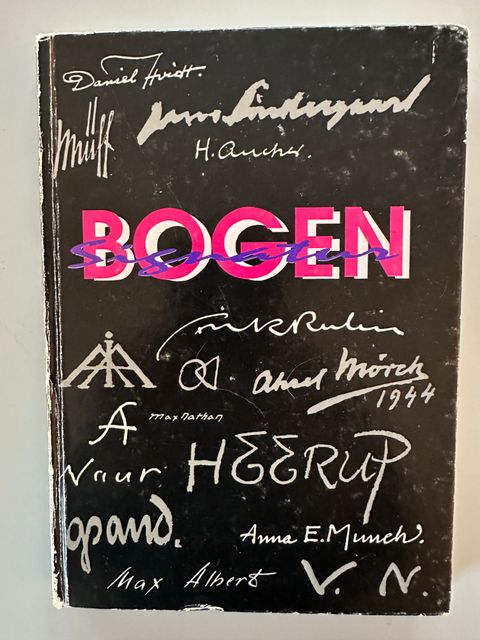 Daniel Hvidt.
Müff
Jens Søndergaard
H. Ancher.
BOGEN
Signatur
Axel Mörch
1944
A
max nathan
Naur
HEERUP
Anna E. Munch.
Max Albert
V. N.